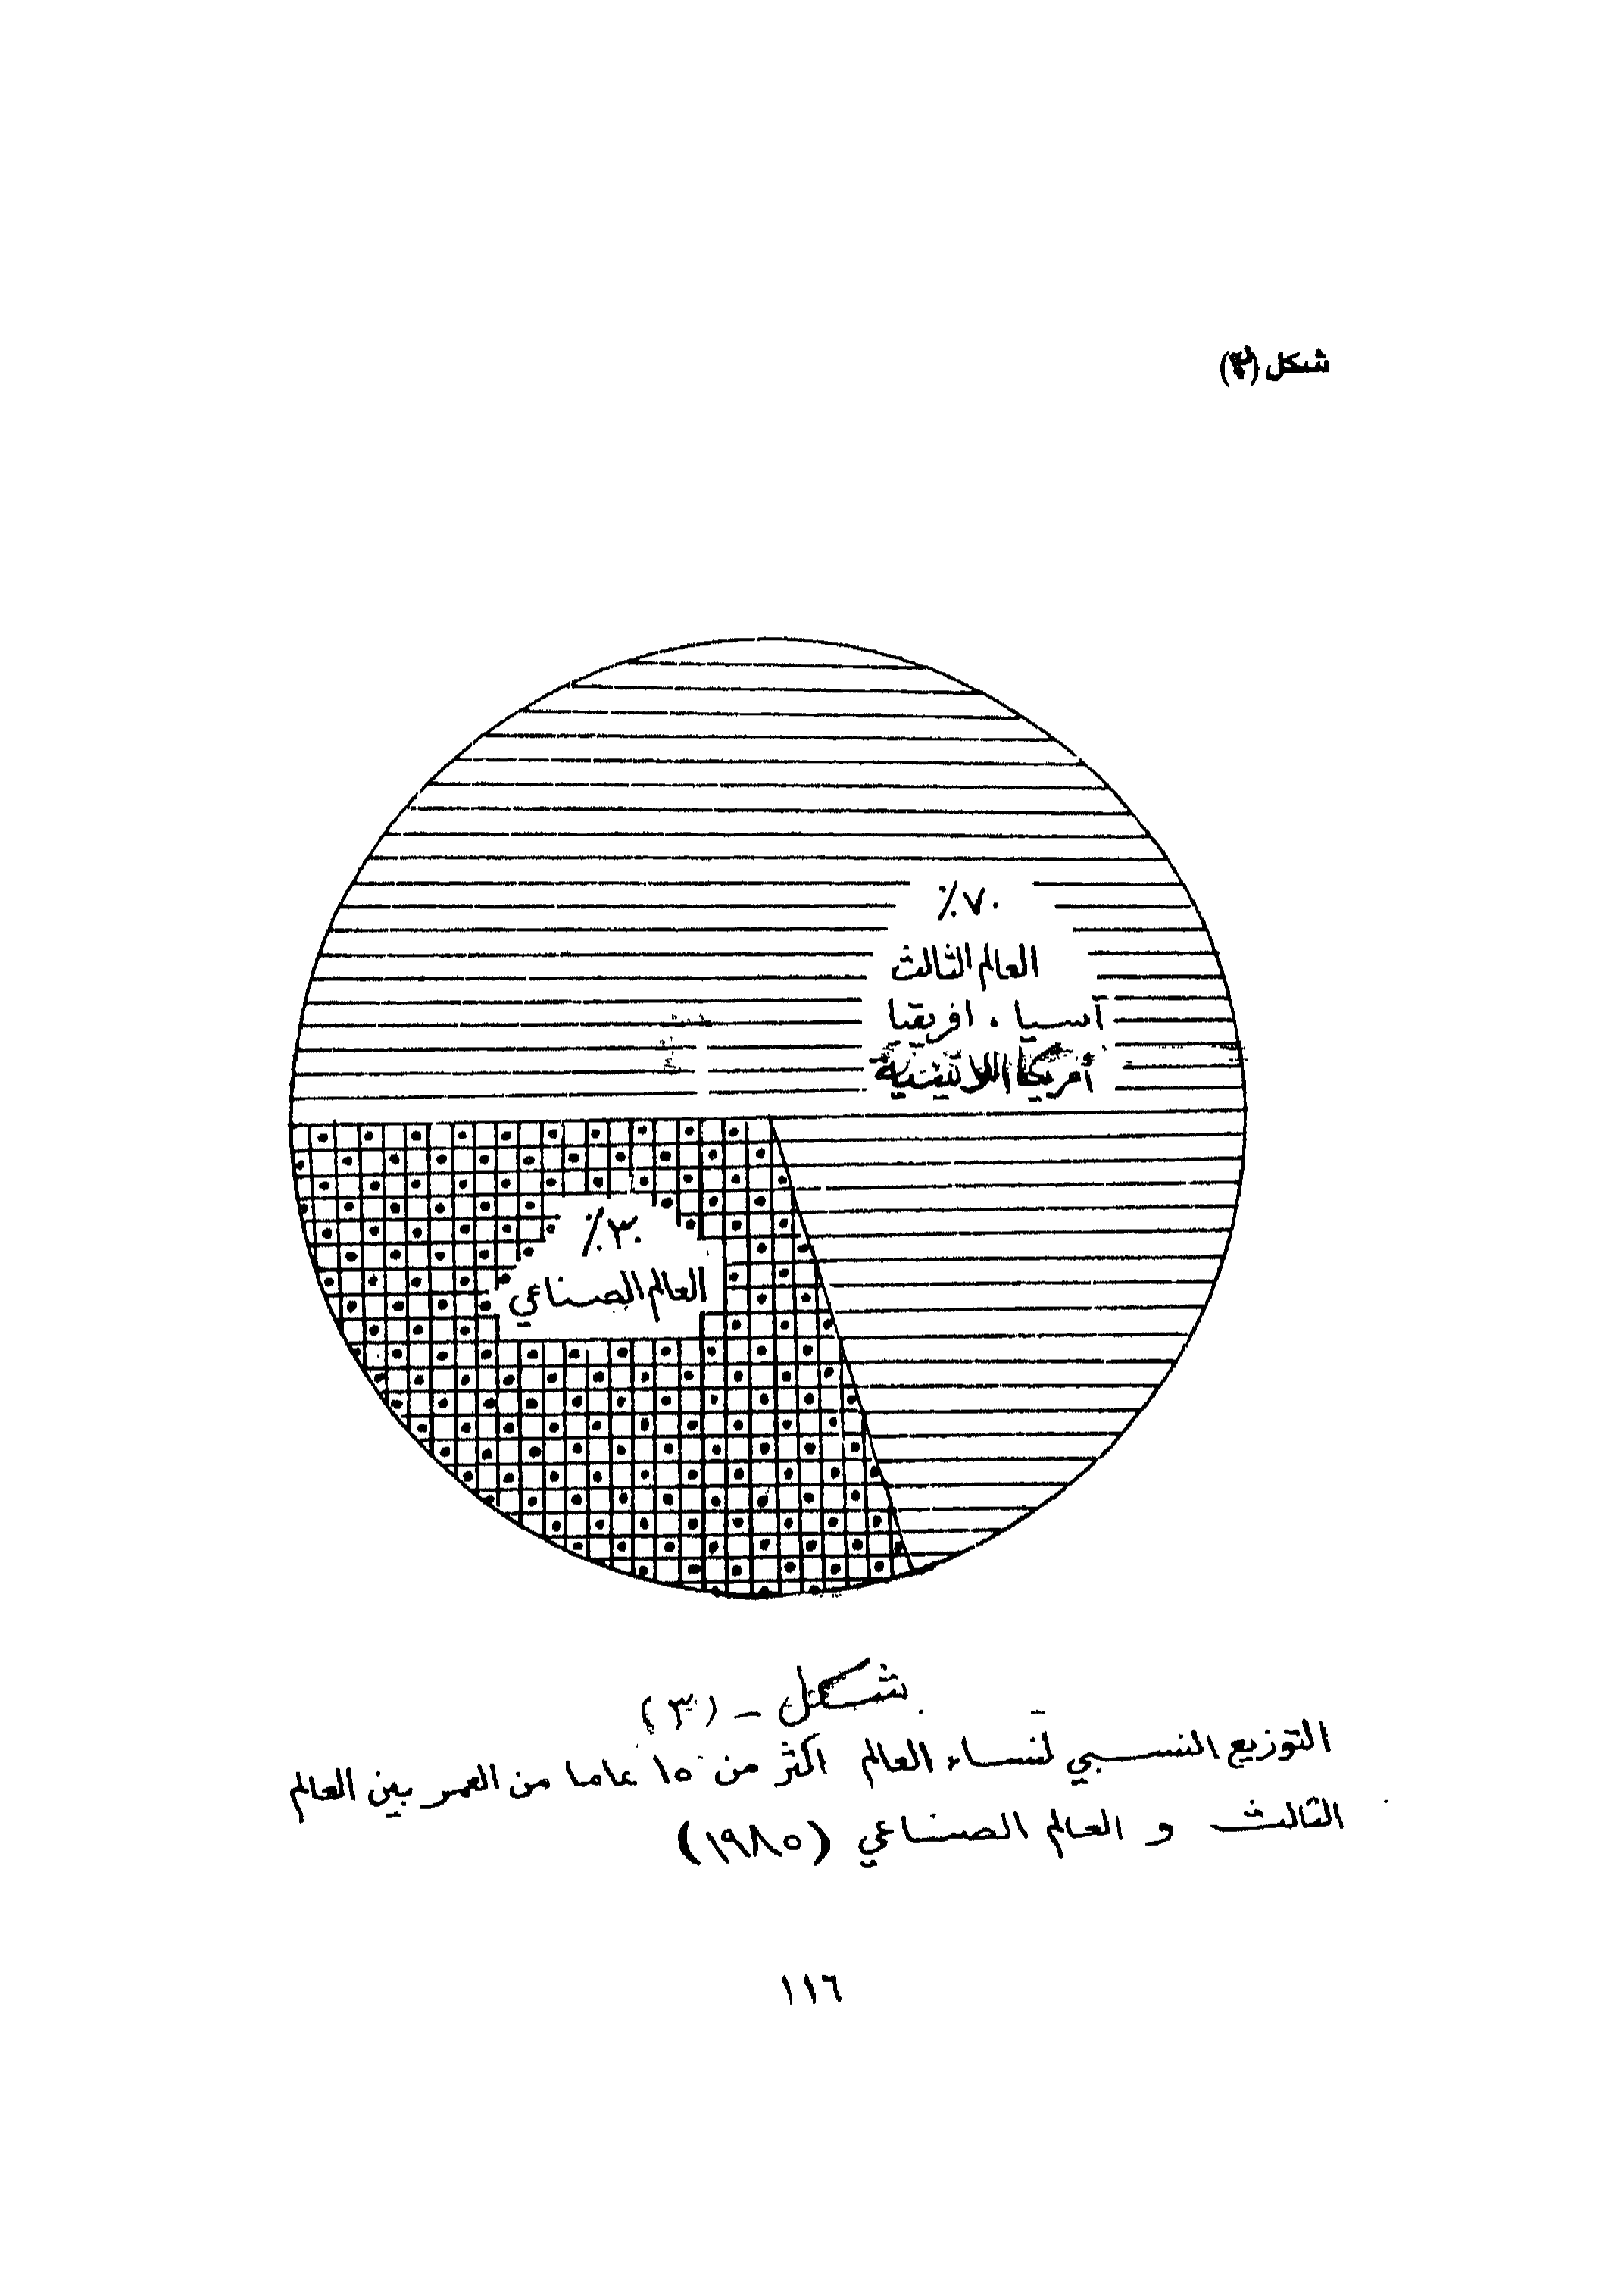 شكل (٣)
٧٠٪
العالم الثالث
آسيا، افريقيا
أمريكا اللاتينية
٣٠٪
العالم الصناعي
شكل - (٣)
التوزيع النسبي لنساء العالم اكثر من ١٥ عاما من العمر بين العالم
الثالث و العالم الصناعي (١٩٨٥)
١١٦